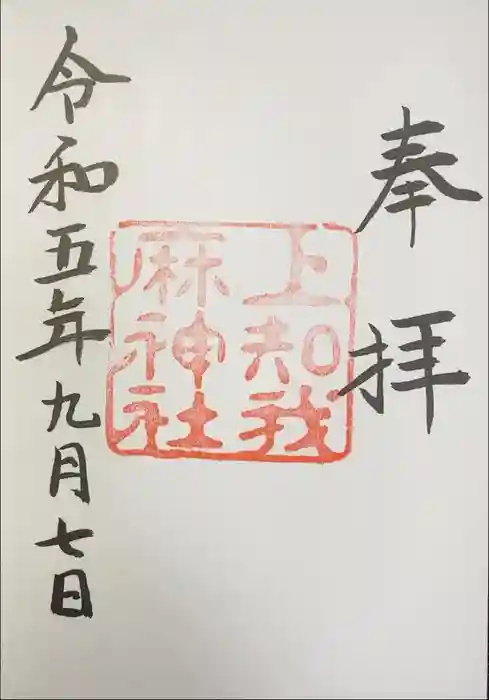 奉拝
上知我
麻神社
令和五年九月七日